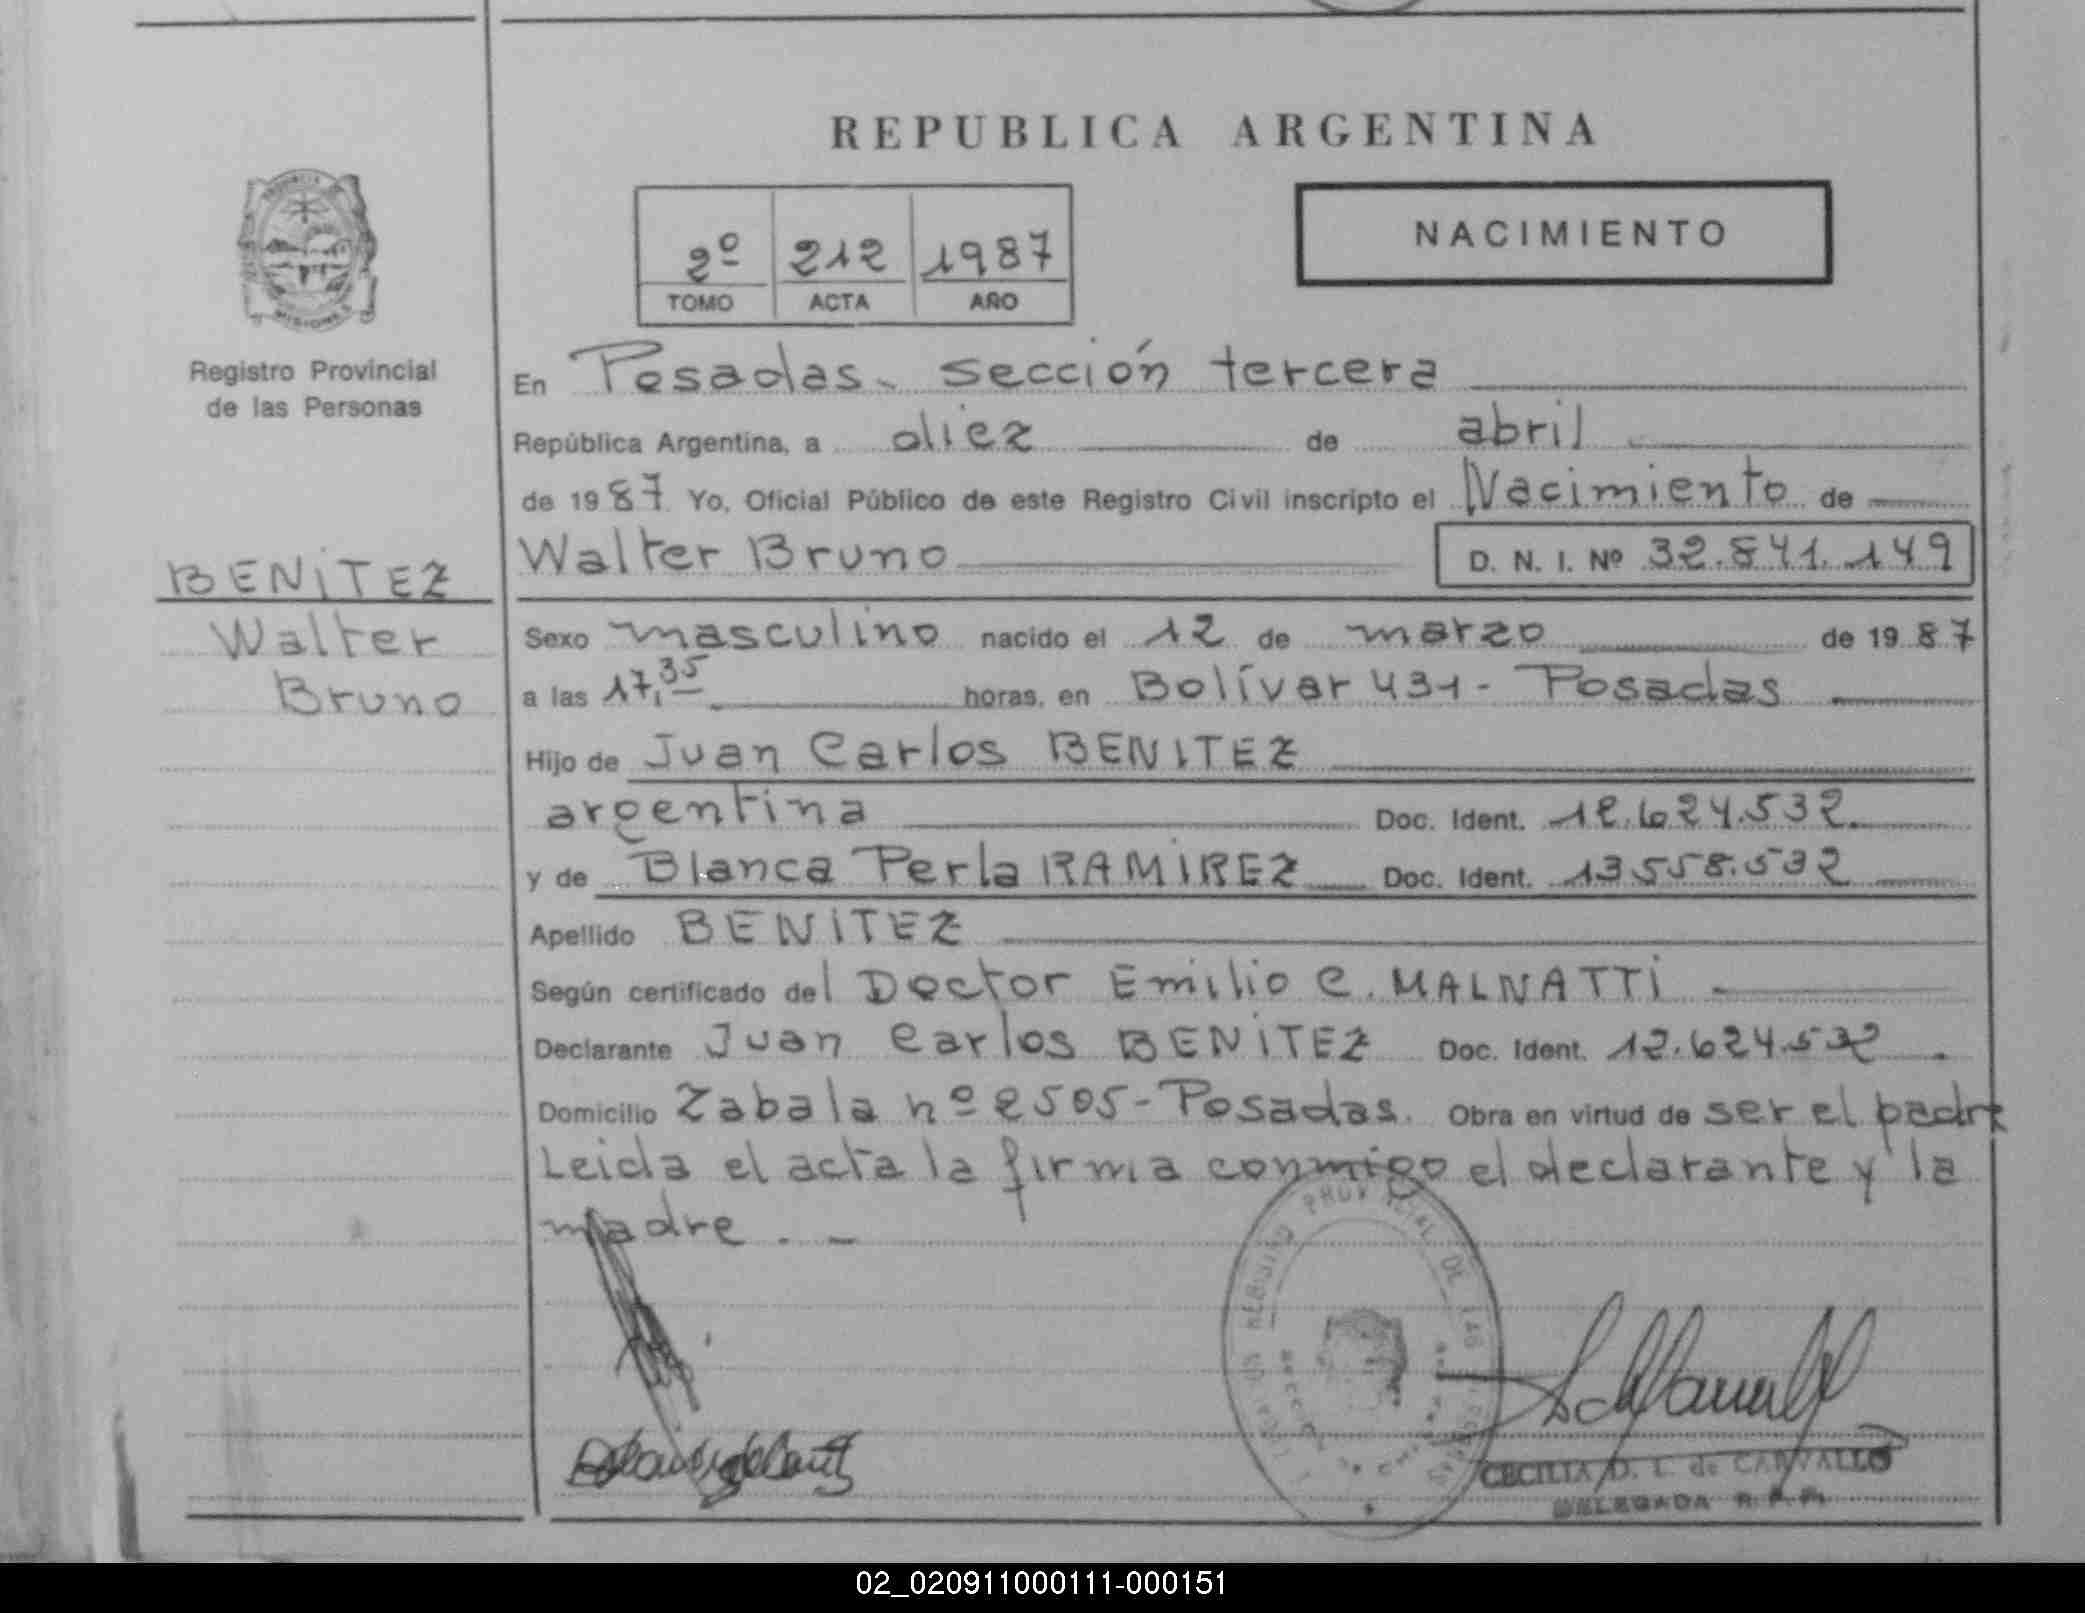 REPUBLICA ARGENTINA
2º 212 1987
TOMO ACTA AÑO
NACIMIENTO
Registro Provincial
de las Personas
BENITEZ
Walter
Bruno
En Posadas. sección tercera
República Argentina, a diez de abril
de 1987 Yo, Oficial Público de este Registro Civil inscripto el Nacimiento de
Walter Bruno D. N. I. Nº 32.841.149
Sexo masculino nacido el 12 de marzo de 1987
a las 17,35 horas, en Bolívar 431 - Posadas
Hijo de Juan Carlos BENITEZ
argentina Doc. Ident. 12.624.532.
y de Blanca Perla RAMIREZ Doc. Ident. 13.558.532
Apellido BENITEZ
Según certificado del Doctor Emilio C. MALNATTI
Declarante Juan Carlos BENITEZ Doc. Ident. 12.624.532.
Domicilio Zabala nº 2505 - Posadas. Obra en virtud de ser el padre
Leida el acta la firma conmigo el declarante y la
madre. -
CECILIA D. L. de CARVALLO
DELEGADA R. P. P.
02_020911000111-000151